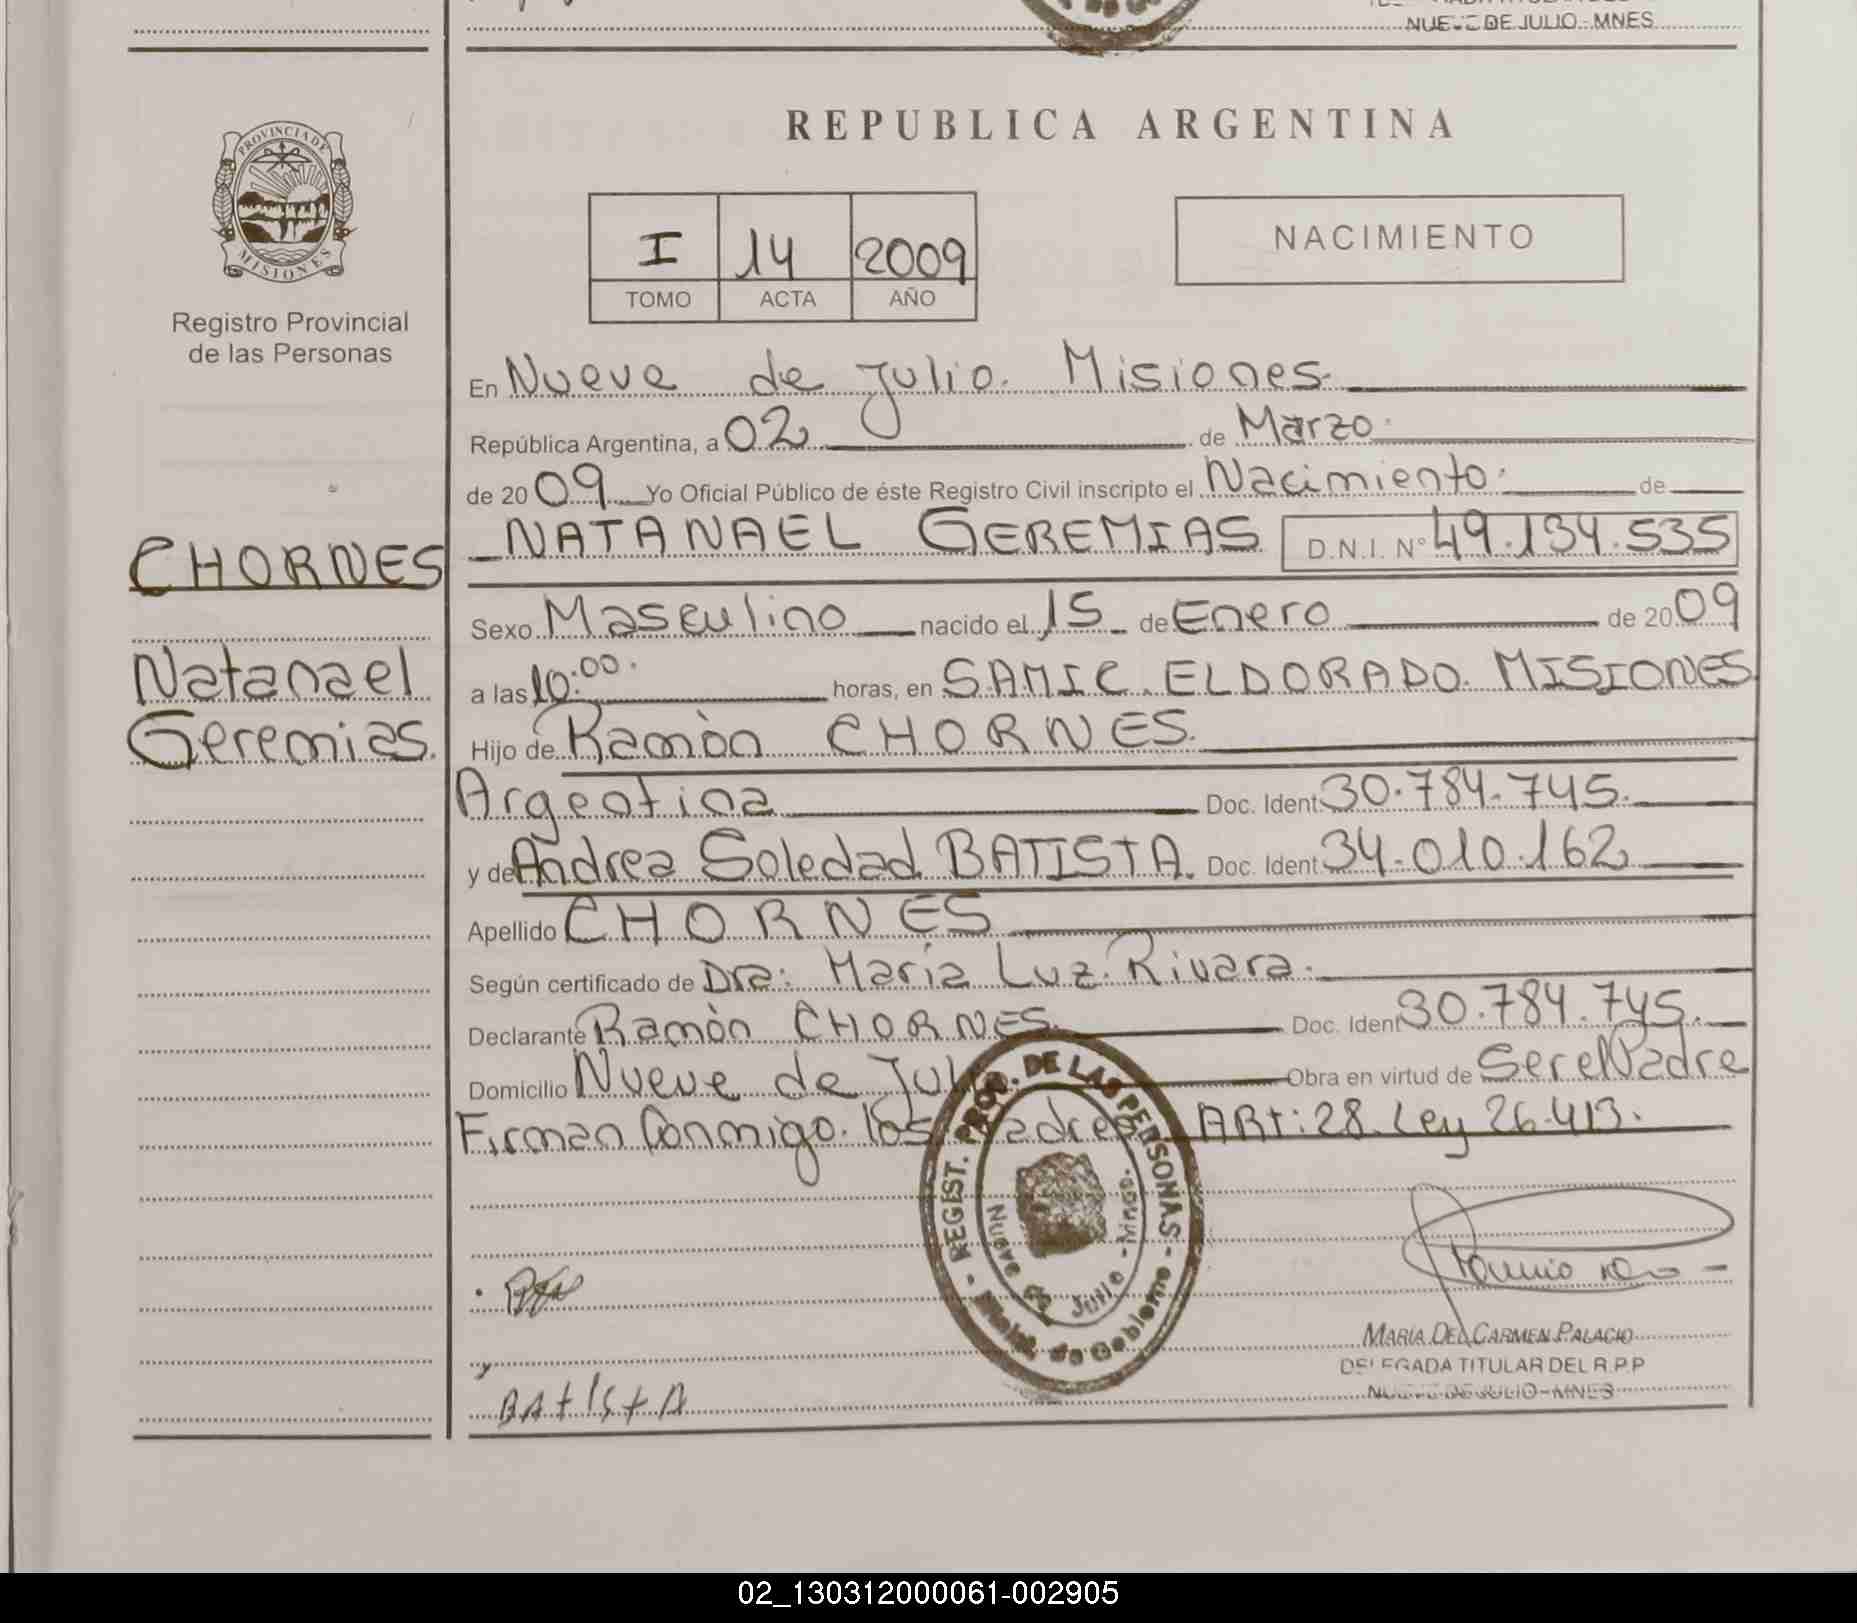 NUEVE DE JULIO - MNES
PROVINCIA DE
MISIONES
Registro Provincial
de las Personas
CHORNES
Natanael
Geremias.
REPUBLICA ARGENTINA
I 14 2009
TOMO ACTA AÑO
NACIMIENTO
En Nueve de Julio. Misiones.
República Argentina, a 02 de Marzo.
de 20 09 Yo Oficial Público de éste Registro Civil inscripto el Nacimiento. de
NATANAEL GEREMIAS D.N.I. Nº 49.134.535
Sexo Masculino nacido el 15 de Enero de 20 09
a las 10:00. horas, en SAMIC. ELDORADO. MISIONES
Hijo de Ramòn CHORNES.
Argentina Doc. Ident 30.784.745.
y de Andrea Soledad BATISTA. Doc. Ident 34.010.162
Apellido CHORNES
Según certificado de Dra: María Luz. Rivara.
Declarante Ramòn CHORNES. Doc. Ident 30.784.745.
Domicilio Nueve de Jul Obra en virtud de Ser el Padre
Firman Conmigo. los Padres ARt: 28. Ley 26.413.
REGIST. PROV. DE LAS PERSONAS -
Nueve de Julio - Mnes.
de Gobierno
BAtIStA
MARÍA DEL CARMEN PALACIO
DELEGADA TITULAR DEL R.P.P
NUEVE DE JULIO - MNES
02_130312000061-002905